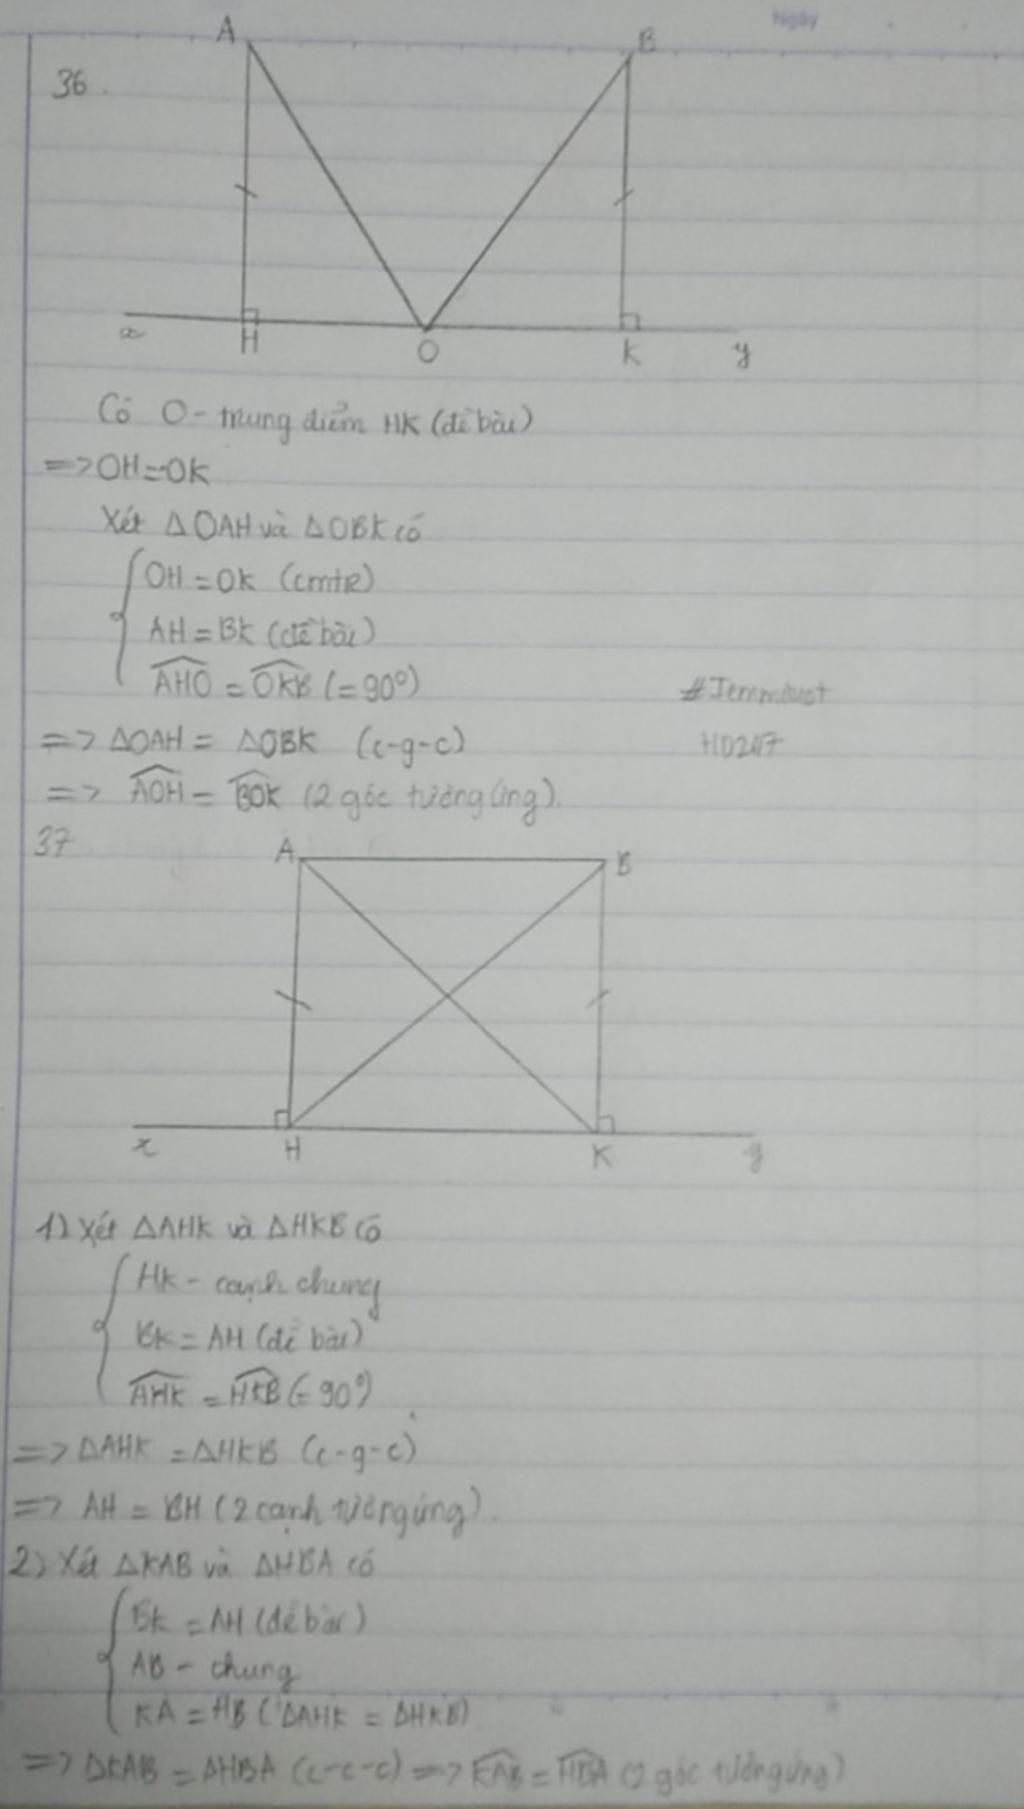 Ngày
A B
36.
x H O K y
Có O - trung điểm HK (đề bài)
=> OH = OK
Xét △OAH và △OBK có
OH = OK (cmtr)
AH = BK (đề bài)
AHO = OKB (= 90°)
=> △OAH = △OBK (c-g-c)
#Jemmduct
HD247
=> AOH = BOK (2 góc tương ứng).
37
A B
x H K y
1) Xét △AHK và △HKB có
HK - cạnh chung
BK = AH (đề bài)
AHK = HKB (= 90°)
=> △AHK = △HKB (c-g-c)
=> AH = BH (2 cạnh tương ứng).
2) Xét △KAB và △HBA có
BK = AH (đề bài)
AB - chung
KA = HB (△AHK = △HKB)
=> △KAB = △HBA (c-c-c) => KAB = HBA (2 góc tương ứng)